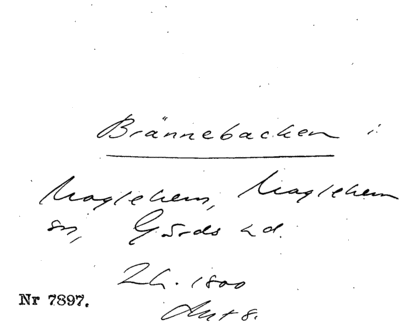 Brännebacken i
Maglehem, Maglehem
sn, Gärds hd.
Lh. 1800
Akt 8.
Nr 7897.